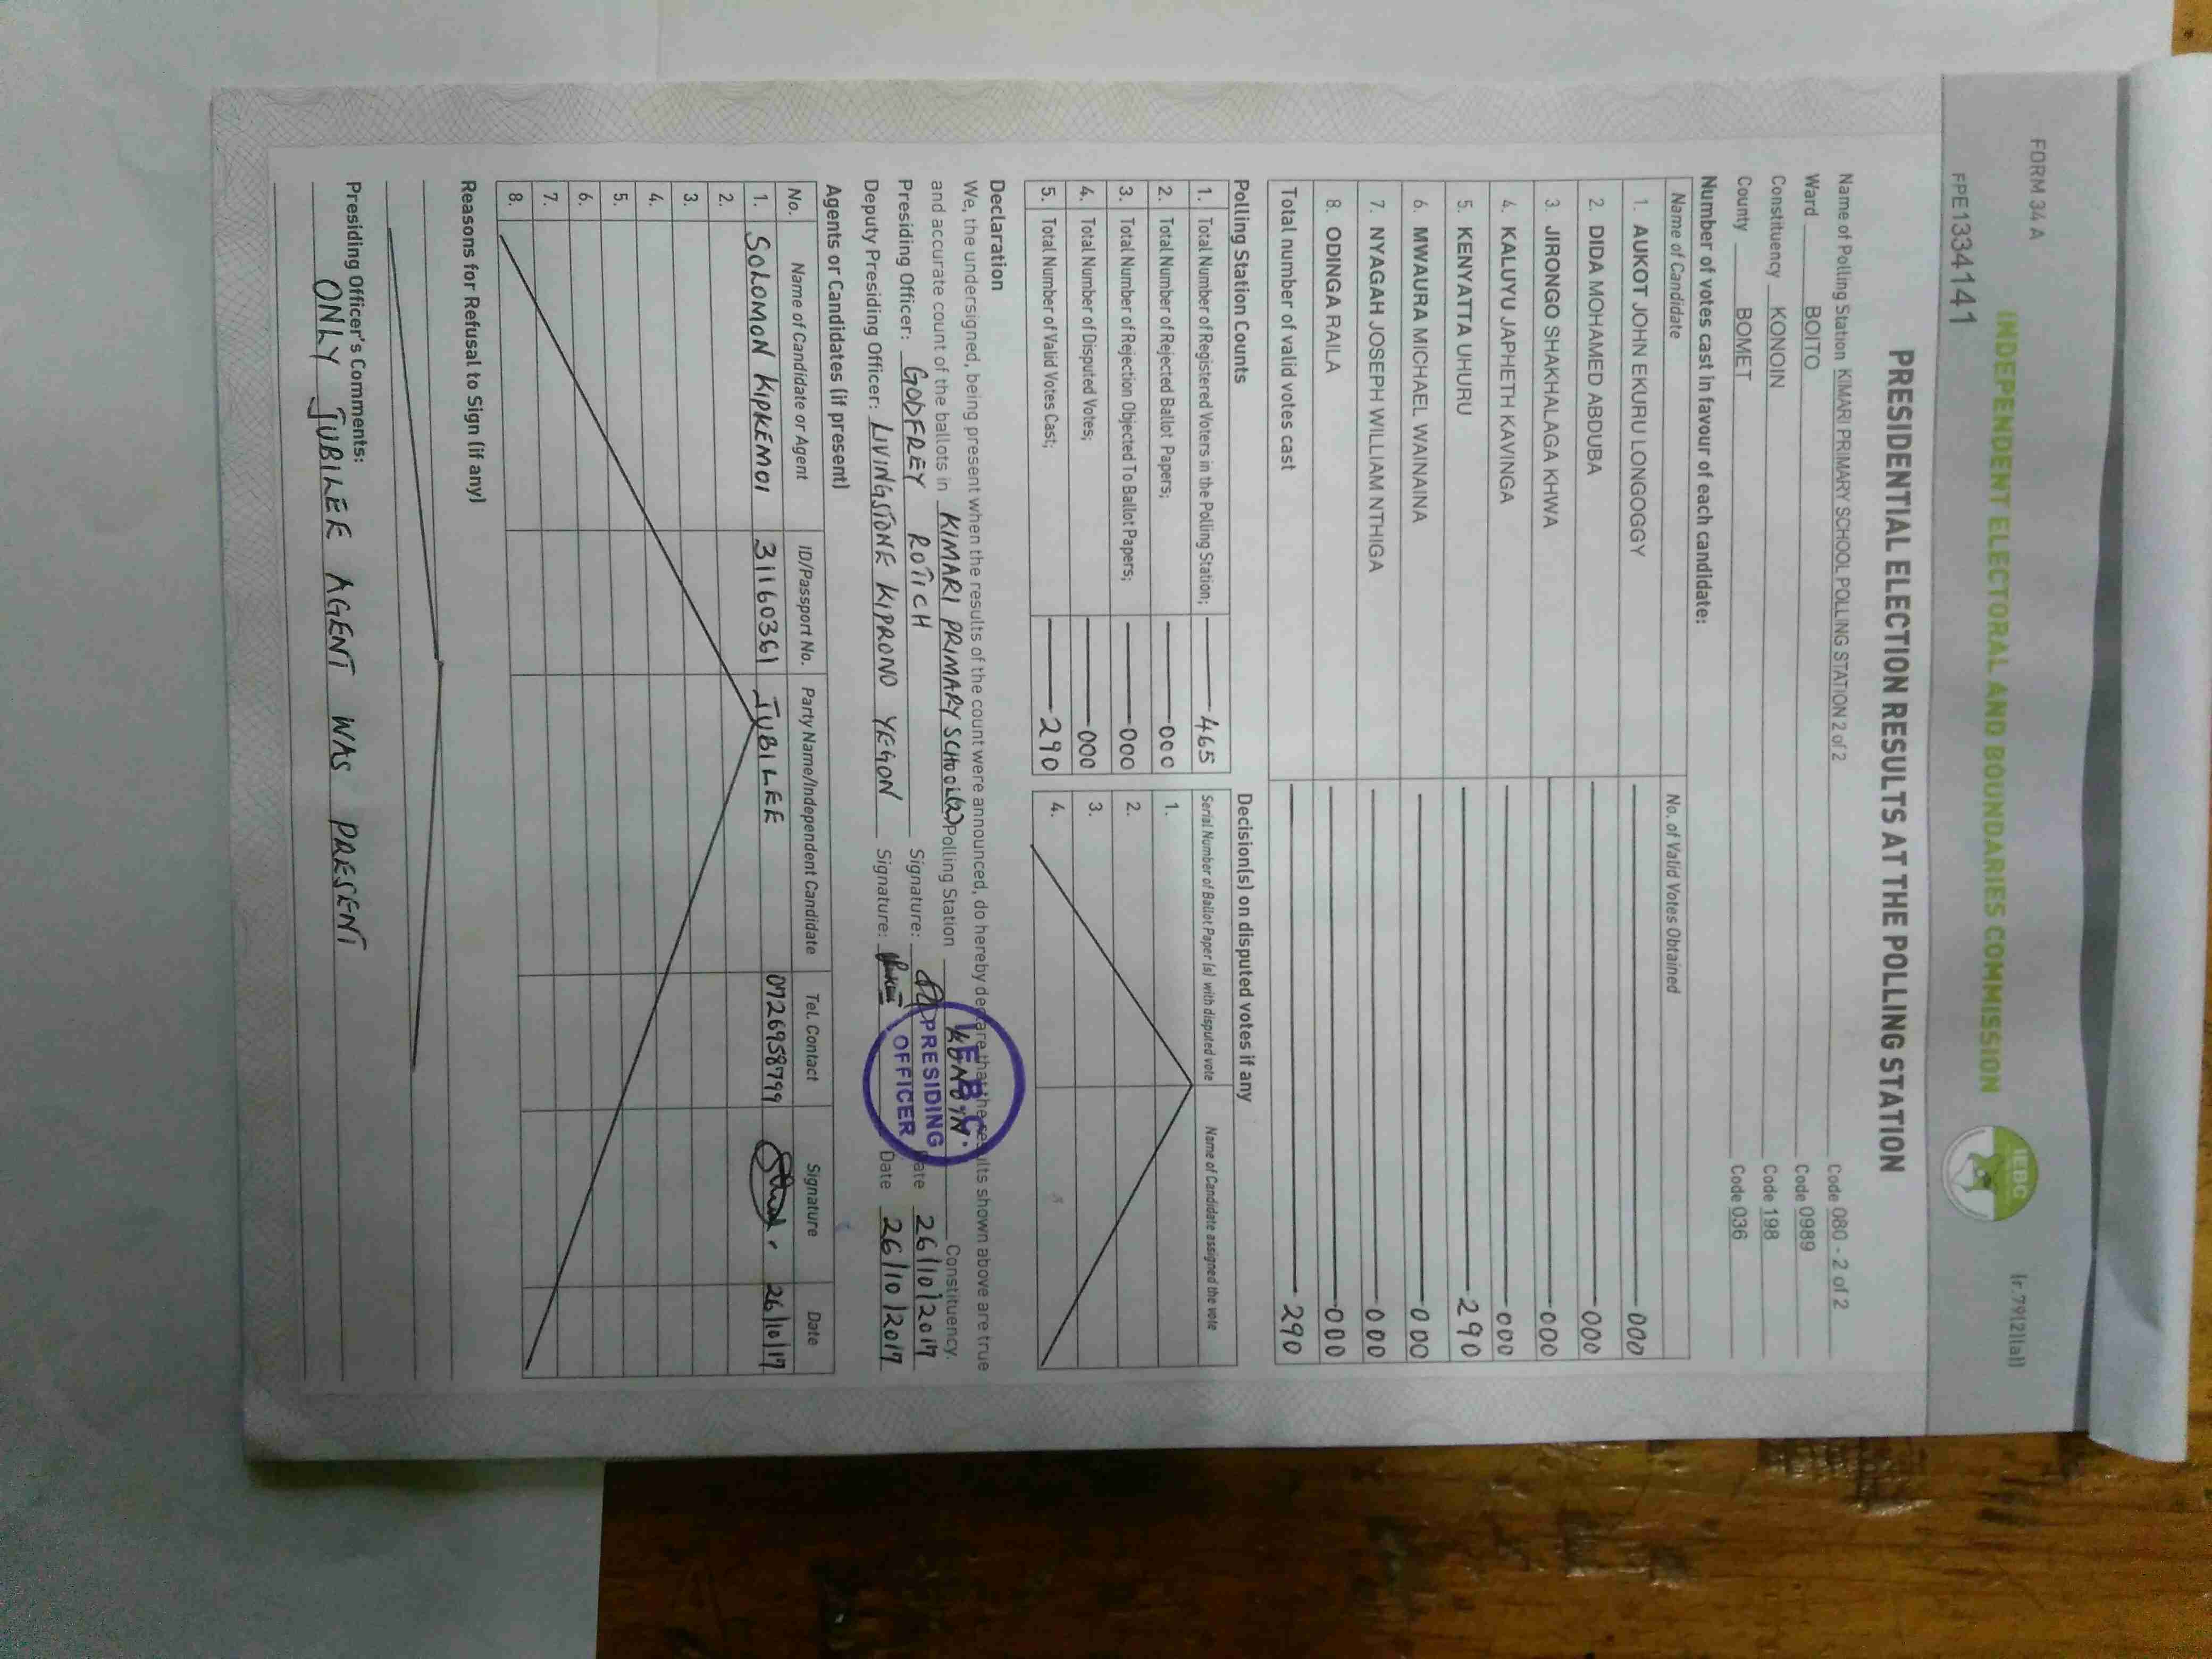 FORM 34 A
(r.79(2)(a))
INDEPENDENT ELECTORAL AND BOUNDARIES COMMISSION
IEBC
FPE1334141
PRESIDENTIAL ELECTION RESULTS AT THE POLLING STATION
Name of Polling Station KIMARI PRIMARY SCHOOL POLLING STATION 2 of 2 Code 080 - 2 of 2
Ward BOITO Code 0989
Constituency KONOIN Code 198
County BOMET Code 036
Number of votes cast in favour of each candidate:
Name of Candidate No. of Valid Votes Obtained
1. AUKOT JOHN EKURU LONGOGGY 000
2. DIDA MOHAMED ABDUBA 000
3. JIRONGO SHAKHALAGA KHWA 000
4. KALUYU JAPHETH KAVINGA 000
5. KENYATTA UHURU 290
6. MWAURA MICHAEL WAINAINA 000
7. NYAGAH JOSEPH WILLIAM NTHIGA 000
8. ODINGA RAILA 000
Total number of valid votes cast 290
Polling Station Counts
1. Total Number of Registered Voters in the Polling Station; 465
2. Total Number of Rejected Ballot Papers; 000
3. Total Number of Rejection Objected To Ballot Papers; 000
4. Total Number of Disputed Votes; 000
5. Total Number of Valid Votes Cast; 290
Decision(s) on disputed votes if any
Serial Number of Ballot Paper (s) with disputed vote Name of Candidate assigned the vote
1.
2.
3.
4.
Declaration
We, the undersigned, being present when the results of the count were announced, do hereby declare that the results shown above are true
and accurate count of the ballots in KIMARI PRIMARY SCHOOL(2) Polling Station KONOIN Constituency.
Presiding Officer: GODFREY ROTICH Signature: Date 26/10/2017
Deputy Presiding Officer: LIVINGSTONE KIPRONO YEGON Signature: Date 26/10/2017
IEBC
PRESIDING
OFFICER
Agents or Candidates (if present)
No. Name of Candidate or Agent ID/Passport No. Party Name/Independent Candidate Tel. Contact Signature Date
1. SOLOMON KIPKEMOI 31160361 JUBILEE 0726958799 26/10/17
2.
3.
4.
5.
6.
7.
8.
Reasons for Refusal to Sign (if any)
Presiding Officer's Comments:
ONLY JUBILEE AGENT WAS PRESENT